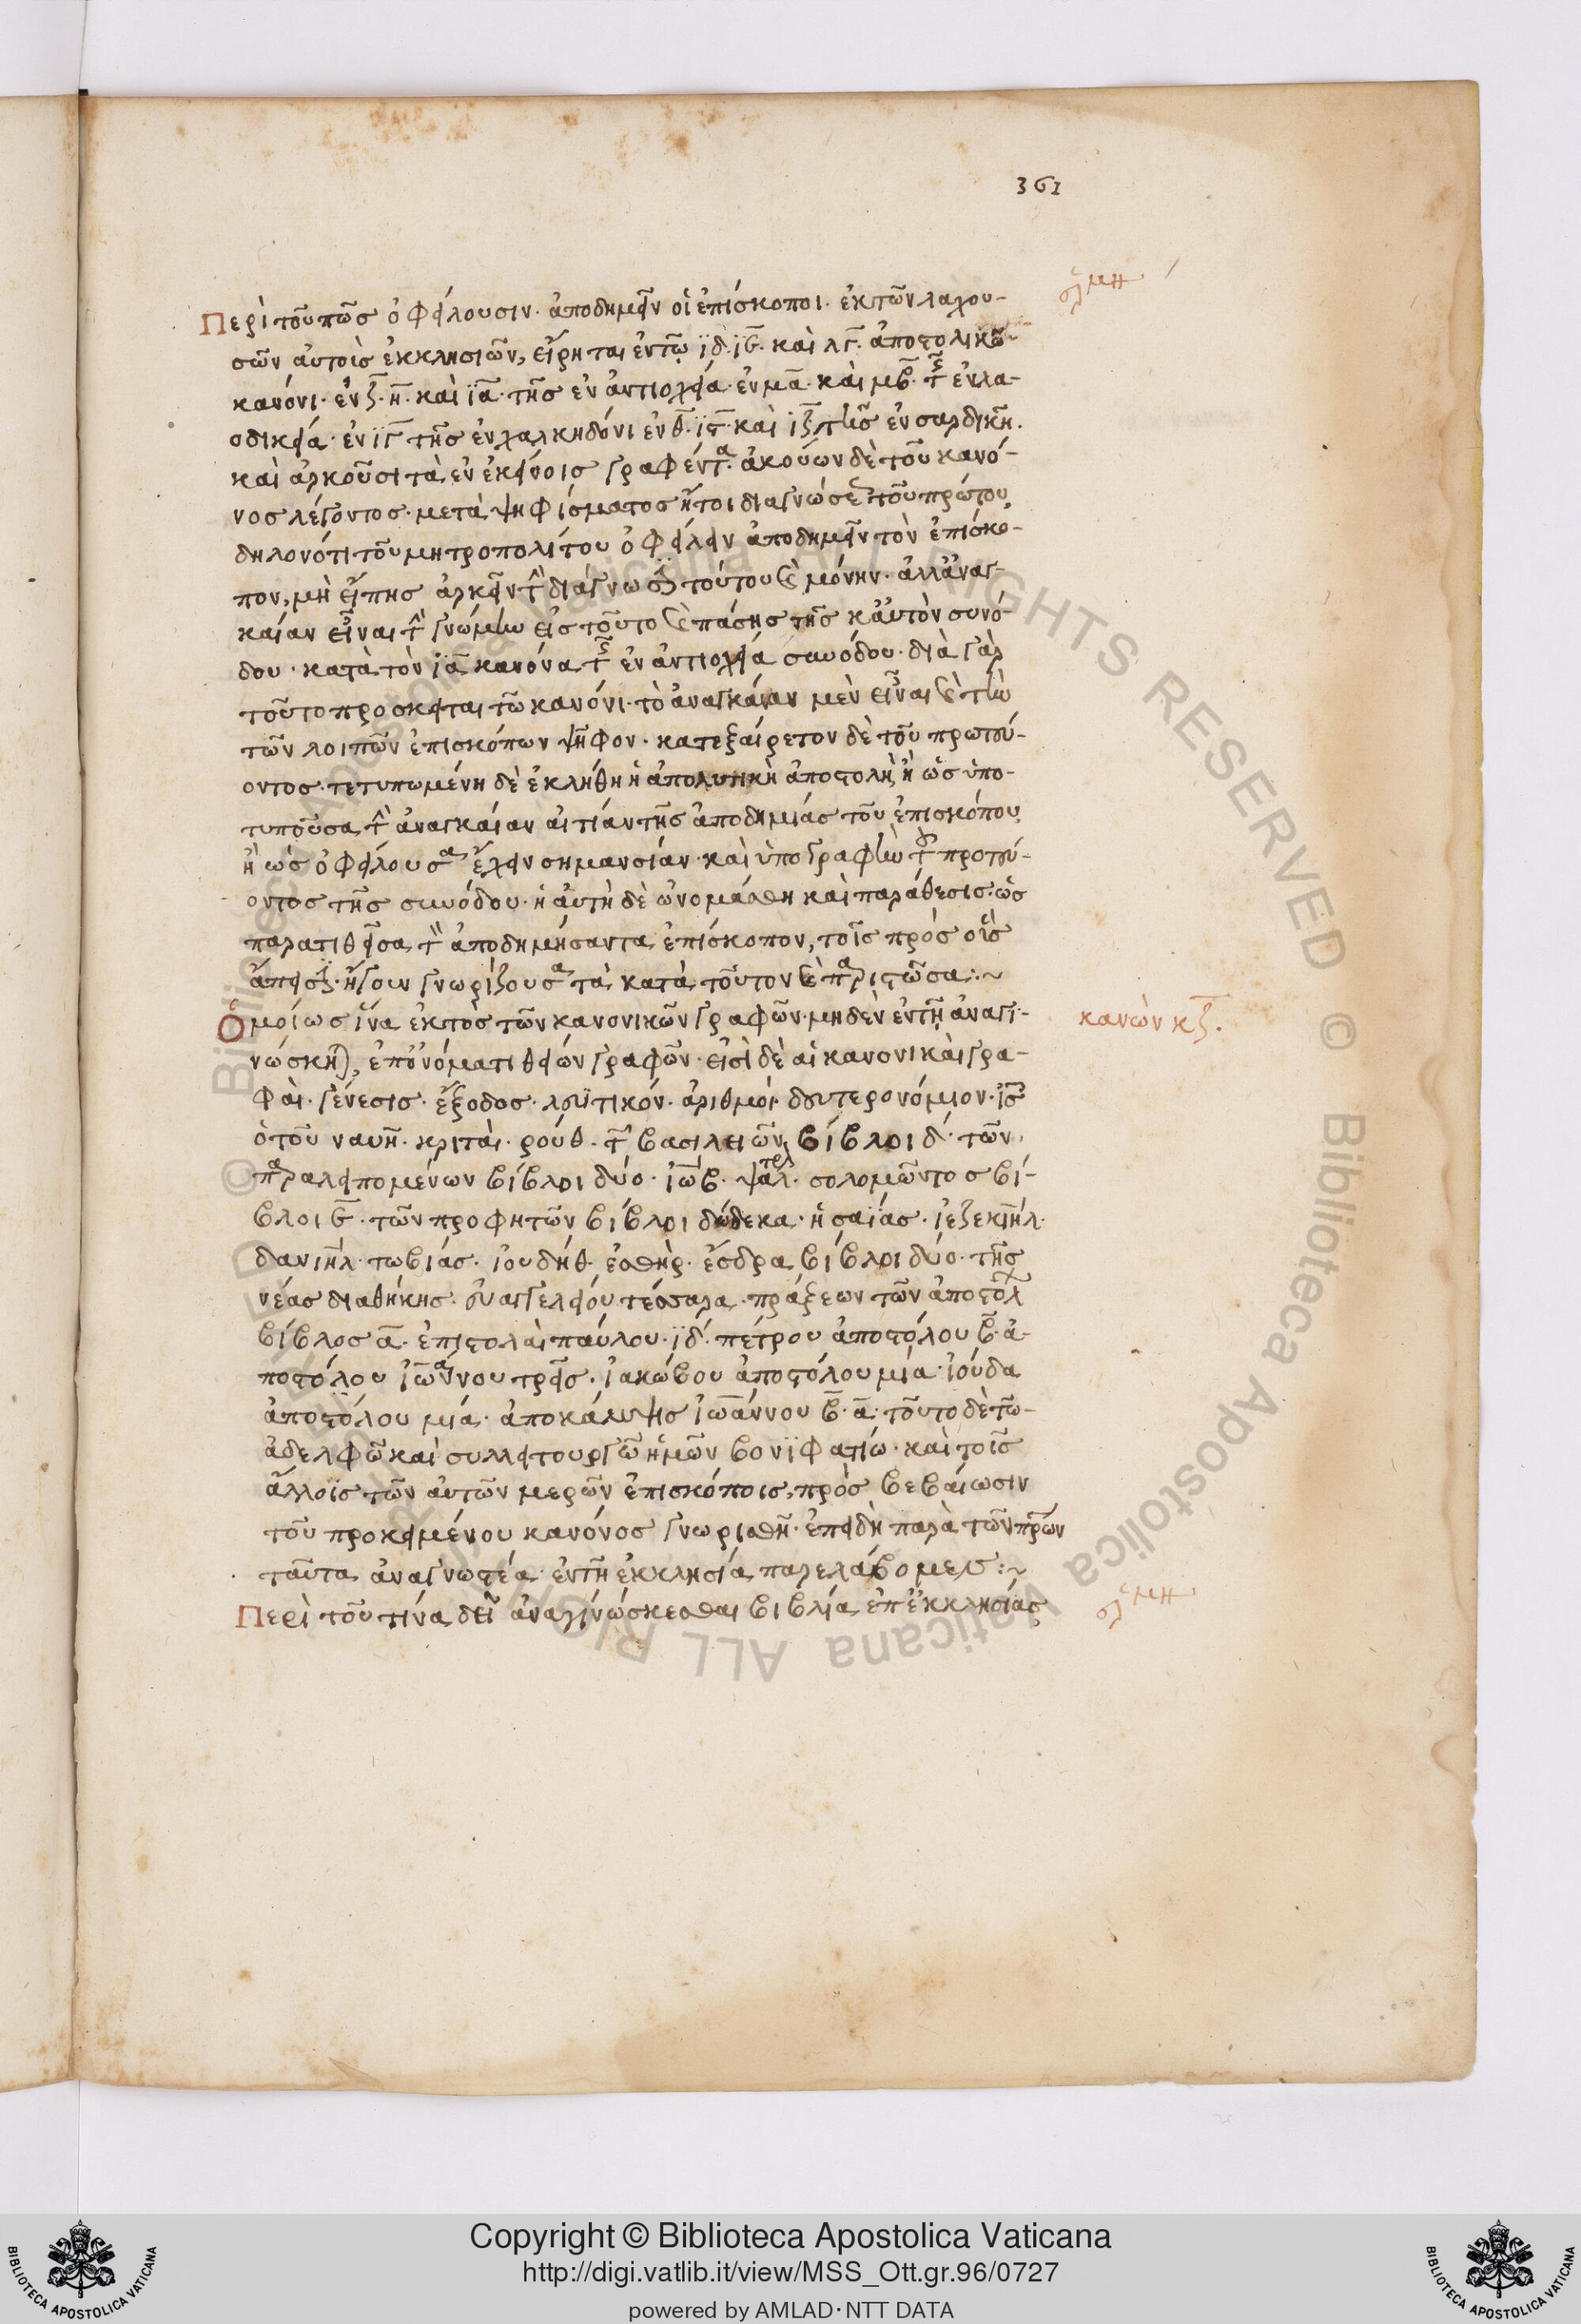 361
Περὶ τοῦ πῶς ὀφείλουσιν· ἀποδημεῖν οἱ ἐπίσκοποι· ἐκ τῶν λαχου-
σῶν αὐτοῖς ἐκκλησιῶν, εἴρηται ἐν τῷ ϊδ· ϊβ· καὶ λγ· ἀποστολικῷ
κανόνι· ἐν ζ· η· καὶ ϊα· τῆς ἐν ἀντιοχεία· ἐν μα· καὶ μβ· τῆς ἐν λα-
οδικεία· ἐν ϊγ τῆς ἐν χαλκηδόνι ἐν θ· ϊϛ· καὶ ϊζ τῆς ἐν σαρδικῆ.
καὶ ἀρκοῦσι τὰ ἐν ἐκείνοις γραφέντα· ἀκούων δὲ τοῦ κανό-
νος λέγοντος· μετὰ ψηφίσματος ἤτοι διαγνώσεως τοῦ πρώτου
δηλονότι τοῦ μητροπολίτου ὀφείλειν ἀποδημεῖν τὸν ἐπίσκο-
πον, μὴ εἴπης ἀρκεῖν τὴν διάγνωσιν τούτου καὶ μόνην· ἀλλ' ἀναγ-
καίαν εἶναι τὴν γνώμην εἰς τοῦτο καὶ πάσης τῆς κατ' αὐτὸν συνό-
δου· κατὰ τὸν ϊα κανόνα τῆς ἐν ἀντιοχεία συνόδου· διὰ γὰρ
τοῦτο προσκειται τῶ κανόνι· τὸ ἀναγκαίαν μὲν εἶναι καὶ τὴν
τῶν λοιπῶν ἐπισκόπων ψῆφον· κατεξαίρετον δὲ τοῦ πρωτεύ-
οντος· τετυπωμένη δὲ ἐκλήθη ἡ ἀπολυτικὴ ἀποστολὴ, ἢ ὡς ὑπο-
τυποῦσα τὴν ἀναγκαίαν αἰτίαν τῆς ἀποδημίας τοῦ ἐπισκόπου
ἢ ὡς ὀφείλουσα ἔχειν σημανσίαν· καὶ ὑπογραφὴν τοῦ πρωτεύ-
οντος τῆς συνόδου· ἡ αὐτὴ δὲ ὠνομάσθη καὶ παράθεσις· ὡς
παρατιθεῖσα τὸν ἀποδημήσαντα ἐπίσκοπον, τοῖς πρὸς οὓς
ἄπεισιν· ἤγουν γνωρίζουσα τὰ κατὰ τοῦτον καὶ παριστῶσα:~
Ὁμοίως ἵνα ἐκτὸς τῶν κανονικῶν γραφῶν· μηδὲν ἐν τῇ ἀναγι-
κανὼν κζ.
νώσκηται, ἐπ' ὀνόματι θείων γραφῶν· εἰσὶ δὲ αἱ κανονικαὶ γρα-
φαὶ· γένεσις· ἔξοδος· λευϊτικόν· ἀριθμοί· δευτερονόμιον· ἰς
ὁ τοῦ ναυῆ· κριταὶ· ροὺθ· τῶν βασιλειῶν βίβλοι δ· τῶν
παραλειπομένων βίβλοι δύο· ἰὼβ· ψαλτηρ· σολομῶντος βί-
βλοι β· τῶν προφητῶν βίβλοι δώδεκα· ἡσαΐας· ἰεζεκιὴλ·
δανιὴλ· τωβίας· ἰουδὴθ· ἐσθὴρ· ἔσδρα βίβλοι δύο· τῆς
νέας διαθήκης· εὐαγγελείου τέσσαρα· πράξεων τῶν ἀποστόλων
βίβλος α· ἐπιστολαὶ παύλου· ϊδ· πέτρου ἀποστόλου β· ἀ-
ποστόλου ἰωάννου τρεῖς· ἰακώβου ἀποστόλου μία· ἰούδα
ἀποστόλου μία· ἀποκάλυψις ἰωάννου β· α· τοῦτο δὲ τῶ-
ἀδελφῶ καὶ συλλειτουργῶ ἡμῶν βονϊφατίω· καὶ τοῖς
ἄλλοις τῶν αὐτῶν μερῶν ἐπισκόποις, πρὸς βεβαίωσιν
τοῦ προκειμένου κανόνος γνωρισθῆ· ἐπειδὴ παρὰ τῶν πρων
ταῦτα ἀναγνωστέα ἐν τῇ ἐκκλησία παρελάβομεν:~
Περὶ τοῦ τίνα δεῖ ἀναγινώσκεσθαι βιβλία ἐπ' ἐκκλησίας
Copyright © Biblioteca Apostolica Vaticana
http://digi.vatlib.it/view/MSS_Ott.gr.96/0727
powered by AMLAD·NTT DATA